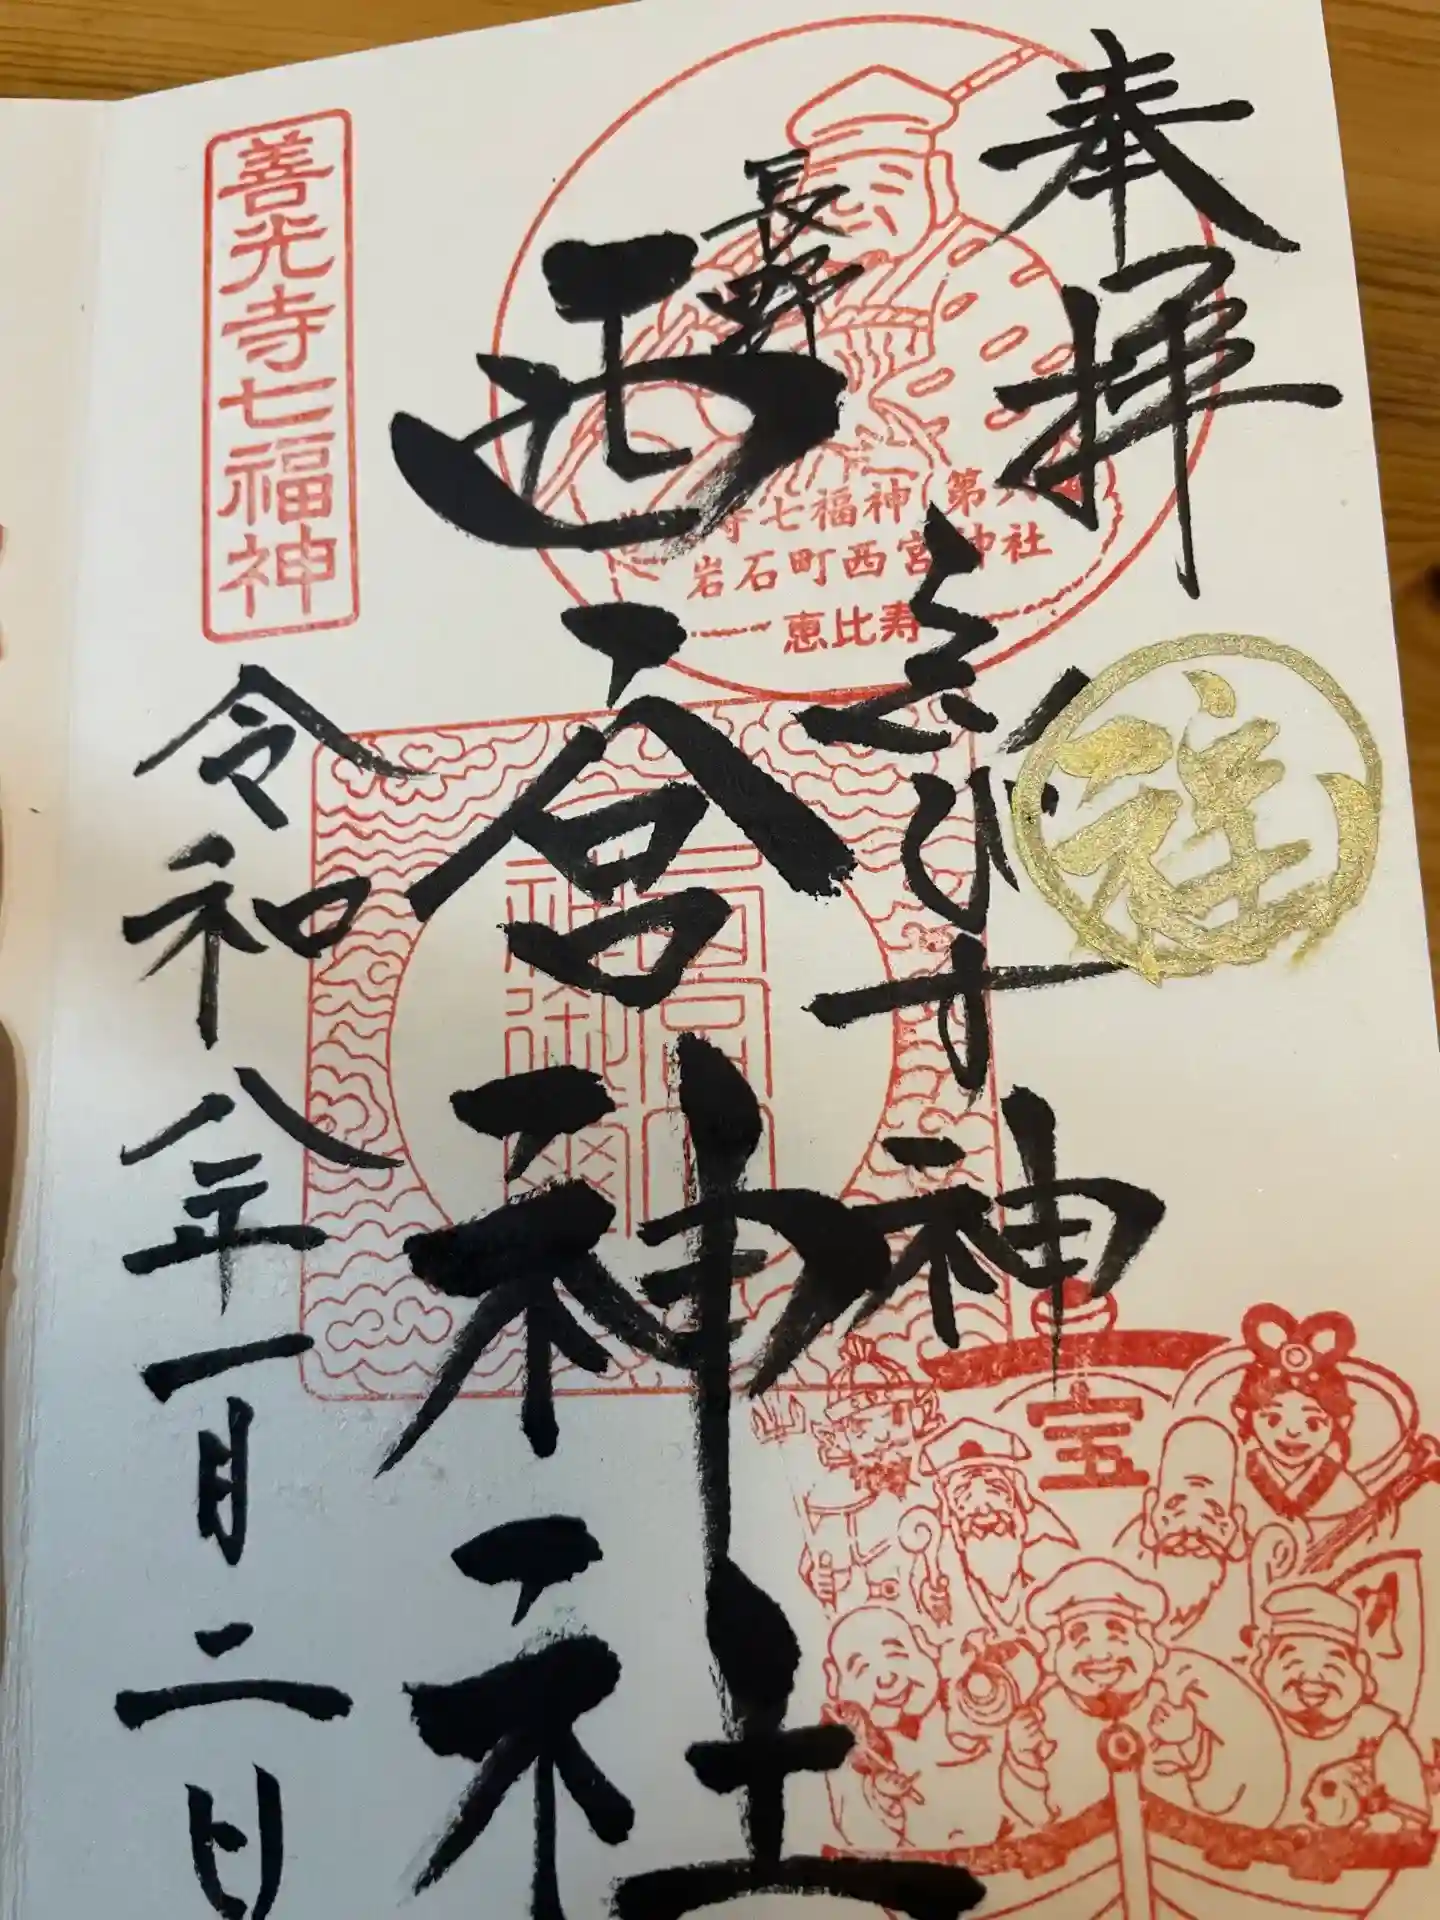 奉拝
えびす神
長野
西宮神社
令和八年一月二日
善光寺七福神
寺七福神 第
岩石町西宮神社
恵比寿
宝